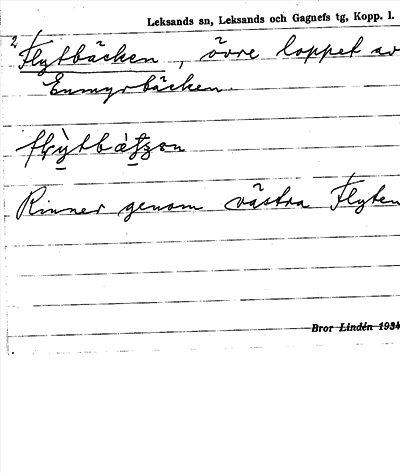 Leksands sn, Leksands och Gagnefs tg, Kopp. l.
2
Flytbäcken, övre loppet av
Enmyrbäcken.
Rinner genom västra Flyten
Bror Lindén 1934